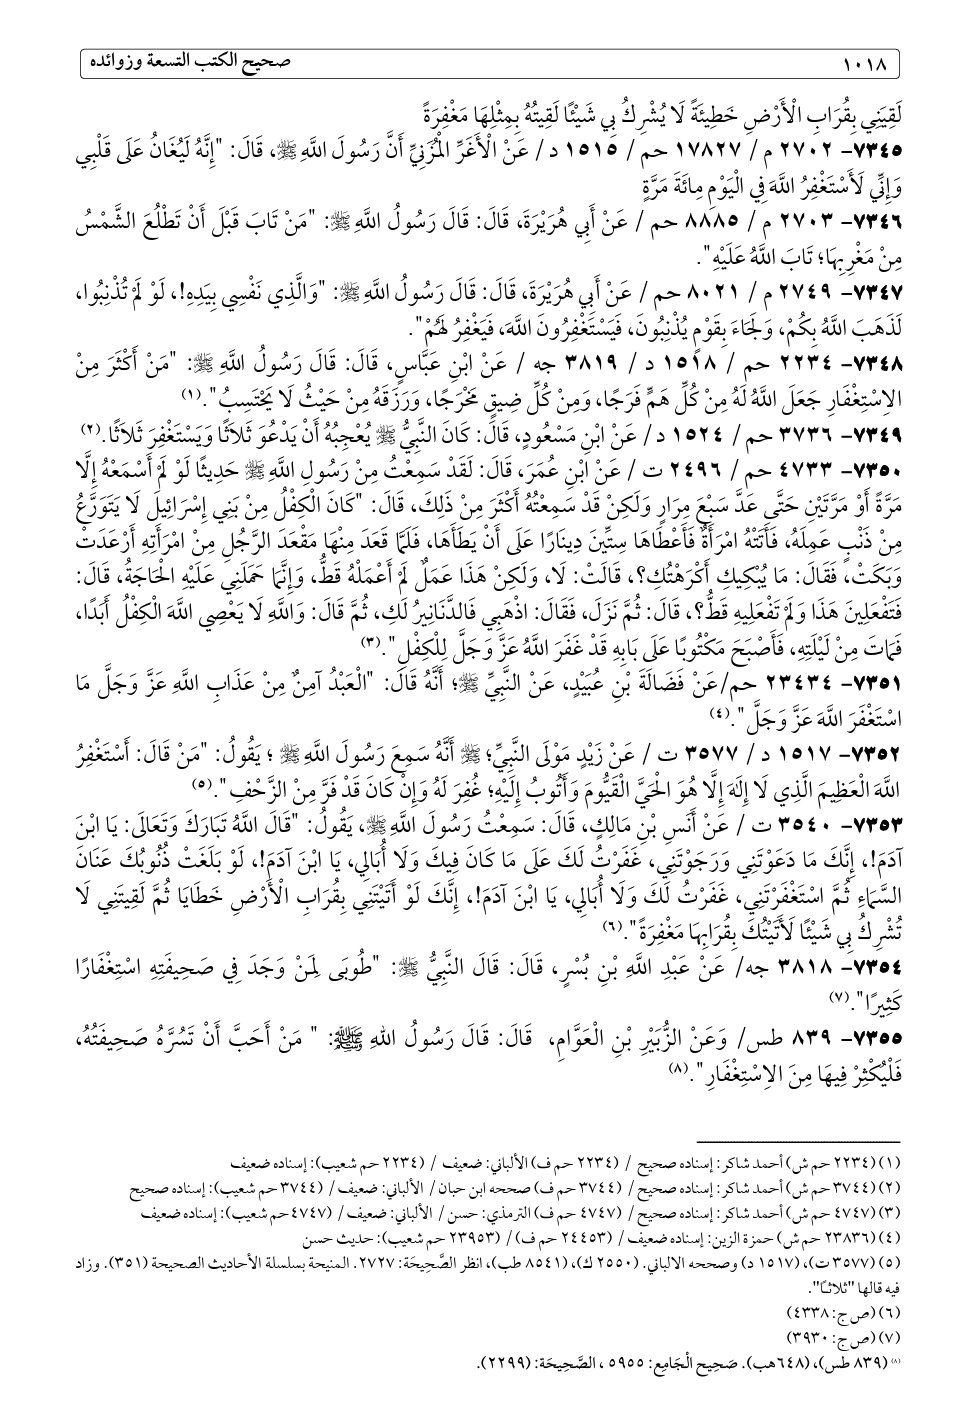 ١٠١٨
صحيح الكتب التسعة وزوائده
لَقِيَنِي بِقُرَابِ الْأَرْضِ خَطِيئَةً لَا يُشْرِكُ بِي شَيْئًا لَقِيتُهُ بِمِثْلِهَا مَغْفِرَةً
٧٣٤٥- ٢٧٠٢ م/ ١٧٨٢٧ حم/ ١٥١٥ د/ عَنْ الْأَغَرِّ الْمُزَنِيِّ أَنَّ رَسُولَ اللَّهِ ﷺ، قَالَ: "إِنَّهُ لَيُغَانُ عَلَى قَلْبِي
وَإِنِّي لَأَسْتَغْفِرُ اللَّهَ فِي الْيَوْمِ مِائَةَ مَرَّةٍ
٧٣٤٦- ٢٧٠٣ م/ ٨٨٨٥ حم/ عَنْ أَبِي هُرَيْرَةَ، قَالَ: قَالَ رَسُولُ اللَّهِ ﷺ: "مَنْ تَابَ قَبْلَ أَنْ تَطْلُعَ الشَّمْسُ
مِنْ مَغْرِبِهَا؛ تَابَ اللَّهُ عَلَيْهِ".
٧٣٤٧- ٢٧٤٩ م/ ٨٠٢١ حم/ عَنْ أَبِي هُرَيْرَةَ، قَالَ: قَالَ رَسُولُ اللَّهِ ﷺ: "وَالَّذِي نَفْسِي بِيَدِهِ!، لَوْ لَمْ تُذْنِبُوا،
لَذَهَبَ اللَّهُ بِكُمْ، وَلَجَاءَ بِقَوْمٍ يُذْنِبُونَ، فَيَسْتَغْفِرُونَ اللَّهَ، فَيَغْفِرُ لَهُمْ".
٧٣٤٨- ٢٢٣٤ حم/ ١٥١٨ د/ ٣٨١٩ جه/ عَنْ ابْنِ عَبَّاسٍ، قَالَ: قَالَ رَسُولُ اللَّهِ ﷺ: "مَنْ أَكْثَرَ مِنْ
الِاسْتِغْفَارِ جَعَلَ اللَّهُ لَهُ مِنْ كُلِّ هَمٍّ فَرَجًا، وَمِنْ كُلِّ ضِيقٍ مَخْرَجًا، وَرَزَقَهُ مِنْ حَيْثُ لَا يَحْتَسِبُ".(١)
٧٣٤٩- ٣٧٣٦ حم/ ١٥٢٤ د/ عَنْ ابْنِ مَسْعُودٍ، قَالَ: كَانَ النَّبِيُّ ﷺ يُعْجِبُهُ أَنْ يَدْعُوَ ثَلَاثًا وَيَسْتَغْفِرَ ثَلَاثًا.(٢)
٧٣٥٠- ٤٧٣٣ حم/ ٢٤٩٦ ت/ عَنْ ابْنِ عُمَرَ، قَالَ: لَقَدْ سَمِعْتُ مِنْ رَسُولِ اللَّهِ ﷺ حَدِيثًا لَوْ لَمْ أَسْمَعْهُ إِلَّا
مَرَّةً أَوْ مَرَّتَيْنِ حَتَّى عَدَّ سَبْعَ مِرَارٍ وَلَكِنْ قَدْ سَمِعْتُهُ أَكْثَرَ مِنْ ذَلِكَ، قَالَ: "كَانَ الْكِفْلُ مِنْ بَنِي إِسْرَائِيلَ لَا يَتَوَرَّعُ
مِنْ ذَنْبٍ عَمِلَهُ، فَأَتَتْهُ امْرَأَةٌ فَأَعْطَاهَا سِتِّينَ دِينَارًا عَلَى أَنْ يَطَأَهَا، فَلَمَّا قَعَدَ مِنْهَا مَقْعَدَ الرَّجُلِ مِنْ امْرَأَتِهِ أَرْعَدَتْ
وَبَكَتْ، فَقَالَ: مَا يُبْكِيكِ أَكْرَهْتُكِ؟، قَالَتْ: لَا، وَلَكِنْ هَذَا عَمَلٌ لَمْ أَعْمَلْهُ قَطُّ، وَإِنَّمَا حَمَلَنِي عَلَيْهِ الْحَاجَةُ، قَالَ:
فَتَفْعَلِينَ هَذَا وَلَمْ تَفْعَلِيهِ قَطُّ؟، قَالَ: ثُمَّ نَزَلَ، فَقَالَ: اذْهَبِي فَالدَّنَانِيرُ لَكِ، ثُمَّ قَالَ: وَاللَّهِ لَا يَعْصِي اللَّهَ الْكِفْلُ أَبَدًا،
فَمَاتَ مِنْ لَيْلَتِهِ، فَأَصْبَحَ مَكْتُوبًا عَلَى بَابِهِ قَدْ غَفَرَ اللَّهُ عَزَّ وَجَلَّ لِلْكِفْلِ".(٣)
٧٣٥١- ٢٣٤٣٤ حم/عَنْ فَضَالَةَ بْنِ عُبَيْدٍ، عَنْ النَّبِيِّ ﷺ؛ أَنَّهُ قَالَ: "الْعَبْدُ آمِنٌ مِنْ عَذَابِ اللَّهِ عَزَّ وَجَلَّ مَا
اسْتَغْفَرَ اللَّهَ عَزَّ وَجَلَّ".(٤)
٧٣٥٢- ١٥١٧ د/ ٣٥٧٧ ت/ عَنْ زَيْدٍ مَوْلَى النَّبِيِّ؛ ﷺ أَنَّهُ سَمِعَ رَسُولَ اللَّهِ ﷺ ؛ يَقُولُ: "مَنْ قَالَ: أَسْتَغْفِرُ
اللَّهَ الْعَظِيمَ الَّذِي لَا إِلَهَ إِلَّا هُوَ الْحَيَّ الْقَيُّومَ وَأَتُوبُ إِلَيْهِ؛ غُفِرَ لَهُ وَإِنْ كَانَ قَدْ فَرَّ مِنْ الزَّحْفِ".(٥)
٧٣٥٣- ٣٥٤٠ ت/ عَنْ أَنَسِ بْنِ مَالِكٍ، قَالَ: سَمِعْتُ رَسُولَ اللَّهِ ﷺ، يَقُولُ: "قَالَ اللَّهُ تَبَارَكَ وَتَعَالَى: يَا ابْنَ
آدَمَ!، إِنَّكَ مَا دَعَوْتَنِي وَرَجَوْتَنِي، غَفَرْتُ لَكَ عَلَى مَا كَانَ فِيكَ وَلَا أُبَالِي، يَا ابْنَ آدَمَ!، لَوْ بَلَغَتْ ذُنُوبُكَ عَنَانَ
السَّمَاءِ ثُمَّ اسْتَغْفَرْتَنِي، غَفَرْتُ لَكَ وَلَا أُبَالِي، يَا ابْنَ آدَمَ!، إِنَّكَ لَوْ أَتَيْتَنِي بِقُرَابِ الْأَرْضِ خَطَايَا ثُمَّ لَقِيتَنِي لَا
تُشْرِكُ بِي شَيْئًا لَأَتَيْتُكَ بِقُرَابِهَا مَغْفِرَةً".(٦)
٧٣٥٤- ٣٨١٨ جه/ عَنْ عَبْدِ اللَّهِ بْنِ بُسْرٍ، قَالَ: قَالَ النَّبِيُّ ﷺ: "طُوبَى لِمَنْ وَجَدَ فِي صَحِيفَتِهِ اسْتِغْفَارًا
كَثِيرًا".(٧)
٧٣٥٥- ٨٣٩ طس/ وَعَنْ الزُّبَيْرِ بْنِ الْعَوَّامِ، قَالَ: قَالَ رَسُولُ اللهِ ﷺ: " مَنْ أَحَبَّ أَنْ تَسُرَّهُ صَحِيفَتُهُ،
فَلْيُكْثِرْ فِيهَا مِنَ الِاسْتِغْفَارِ".(٨)
(١) (٢٢٣٤ حم ش) أحمد شاكر: إسناده صحيح / (٢٢٣٤ حم ف) الألباني: ضعيف / (٢٢٣٤ حم شعيب): إسناده ضعيف
(٢) (٣٧٤٤ حم ش) أحمد شاكر: إسناده صحيح / (٣٧٤٤ حم ف) صححه ابن حبان/ الألباني: ضعيف/ (٣٧٤٤ حم شعيب): إسناده صحيح
(٣) (٤٧٤٧ حم ش) أحمد شاكر: إسناده صحيح / (٤٧٤٧ حم ف) الترمذي: حسن / الألباني: ضعيف/ (٤٧٤٧حم شعيب): إسناده ضعيف
(٤) (٢٣٨٣٦ حم ش) حمزة الزين: إسناده ضعيف/ (٢٤٤٥٣ حم ف)/ (٢٣٩٥٣ حم شعيب): حديث حسن
(٥) (٣٥٧٧ ت)، (١٥١٧ د) وصححه الالباني. (٢٥٥٠ ك)، (٨٥٤١ طب)، انظر الصَّحِيحَة: ٢٧٢٧. المنيحة بسلسلة الأحاديث الصحيحة (٣٥١). وزاد
فيه قالها "ثلاثًا".
(٦) (ص ج: ٤٣٣٨)
(٧) (ص ج: ٣٩٣٠)
(٨) (٨٣٩ طس)، (٦٤٨هب). صَحِيح الْجَامِع: ٥٩٥٥ ، الصَّحِيحَة: (٢٢٩٩).